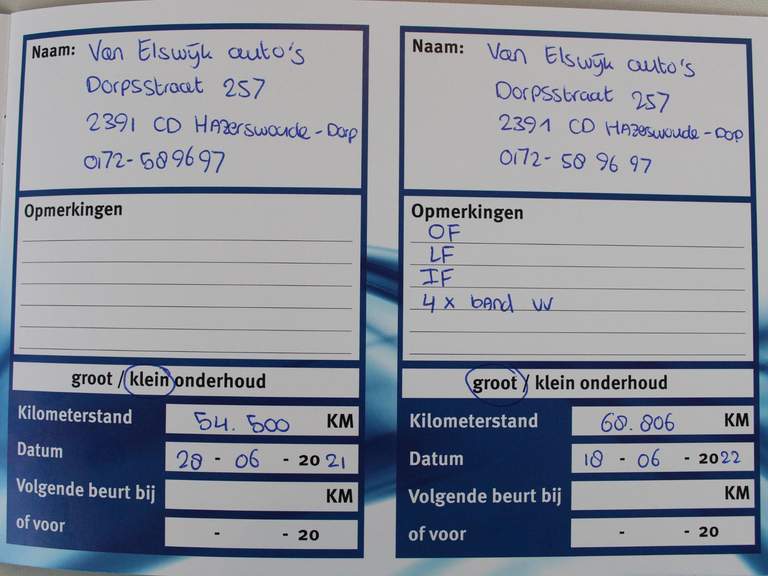 Naam: Van Elswijk auto's
Dorpsstraat 257
2391 CD Hazerswoude-Dorp
0172-589697
Opmerkingen
groot / klein onderhoud
Kilometerstand 54.500 KM
Datum 28 - 06 - 2021
Volgende beurt bij KM
of voor - - 20
Naam: Van Elswijk auto's
Dorpsstraat 257
2391 CD Hazerswoude-Dorp
0172-589697
Opmerkingen
OF
LF
IF
4 x band vv
groot / klein onderhoud
Kilometerstand 68.806 KM
Datum 18 - 06 - 2022
Volgende beurt bij KM
of voor - - 20